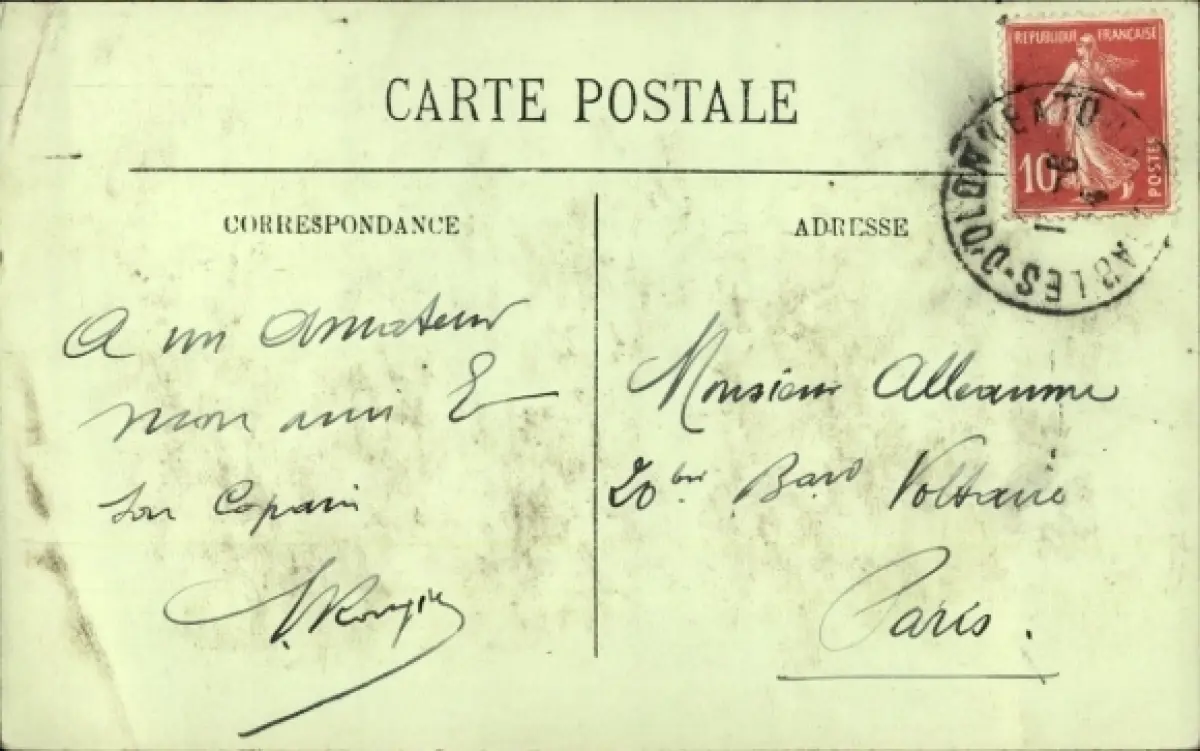 CARTE POSTALE
REPUBLIQUE FRANÇAISE
10
POSTES
SABLES-D'OLONNE
CORRESPONDANCE
ADRESSE
A un Amateur
mon ami E
Son Copain
Monsieur Alleaume
20 bis Bard Voltaire
Paris.